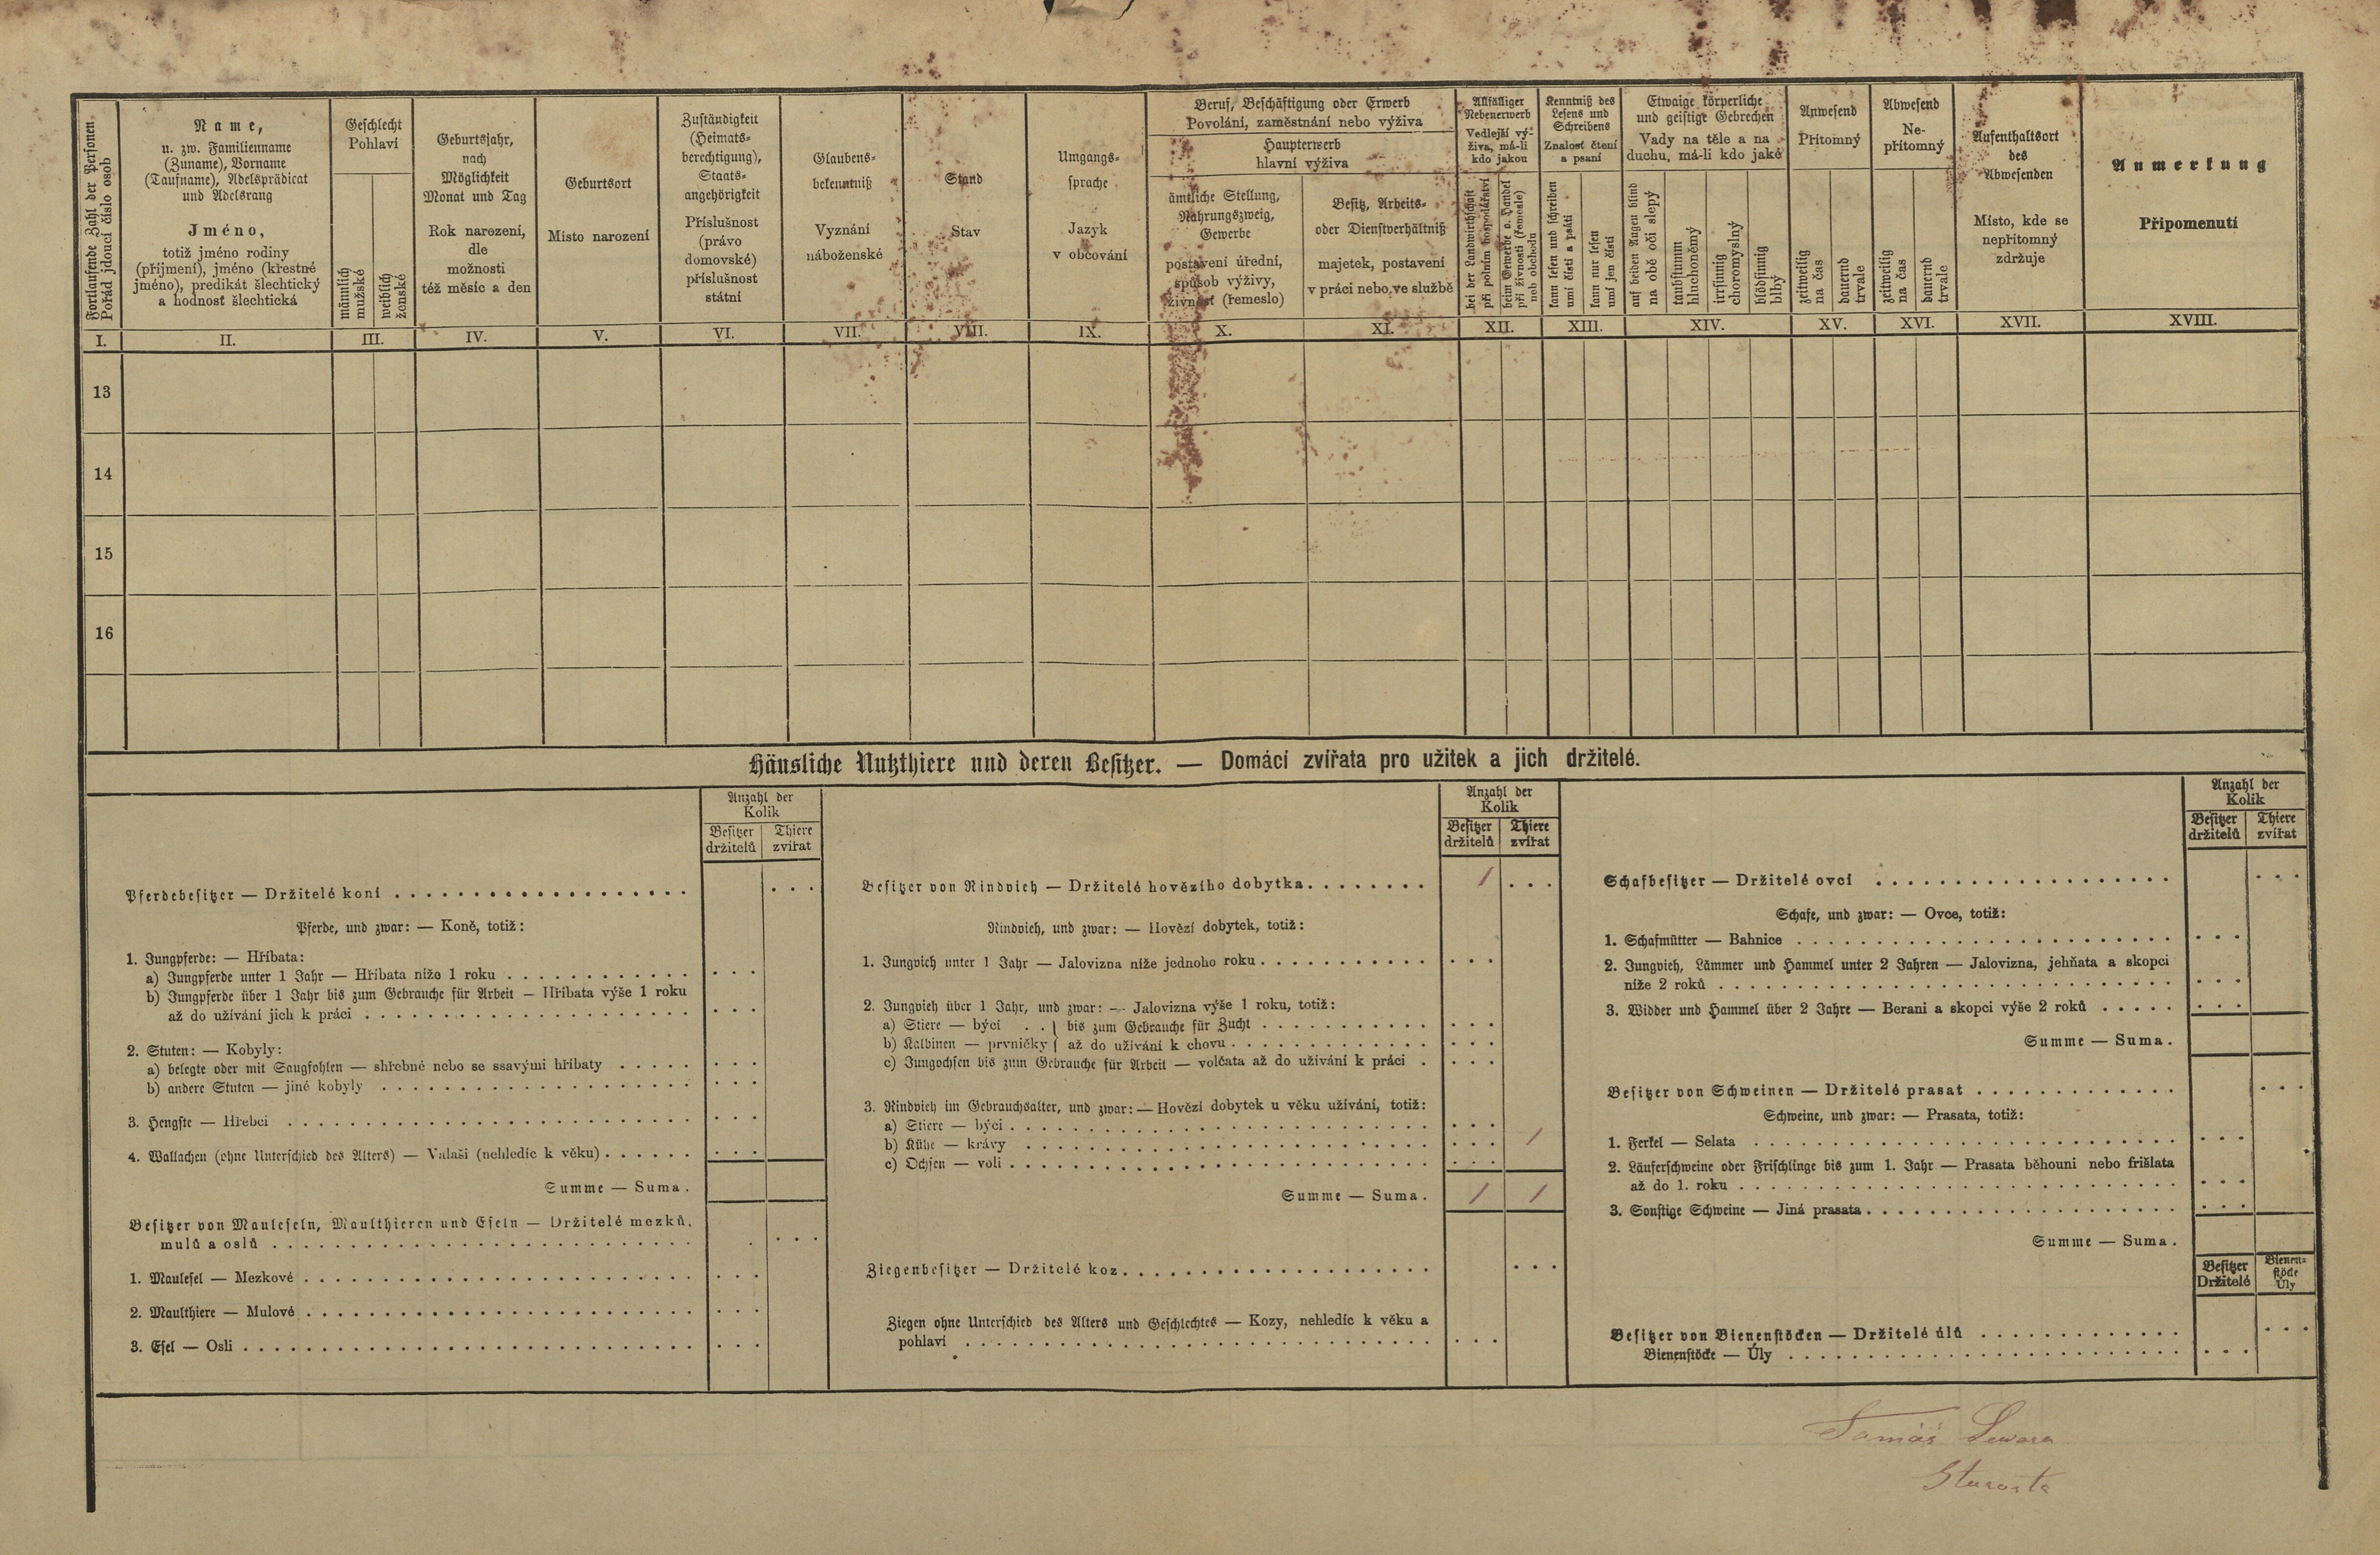 Fortlaufende Zahl der Personen
Pořád jdoucí číslo osob
I.
Name,
u. zw. Familienname
(Zuname), Vorname
(Taufname), Adelsprädicat
und Adelsrang
Jméno,
totiž jméno rodiny
(příjmení), jméno (křestné
jméno), predikát šlechtický
a hodnosť šlechtická
II.
Geschlecht
Pohlaví
männlich
mužské
weiblich
ženské
III.
Geburtsjahr,
nach
Möglichkeit
Monat und Tag
Rok narození,
dle
možnosti
též měsíc a den
IV.
Geburtsort
Místo narození
V.
Zuständigkeit
(Heimats-
berechtigung),
Staats-
angehörigkeit
Příslušnost
(právo
domovské)
příslušnost
státní
VI.
Glaubens-
bekenntniß
Vyznání
náboženské
VII.
Stand
Stav
VIII.
Umgangs-
sprache
Jazyk
v obcování
IX.
Beruf, Beschäftigung oder Erwerb
Povolání, zaměstnání nebo výživa
Haupterwerb
hlavní výživa
ämtliche Stellung,
Nahrungszweig,
Gewerbe
postavení úřední,
spůsob výživy,
živnosť (řemeslo)
X.
Besitz, Arbeits-
oder Dienstverhältniß
majetek, postavení
v práci nebo ve službě
XI.
Allfälliger
Nebenerwerb
Vedlejší vý-
živa, má-li
kdo jakou
bei der Landwirthschaft
při polním hospodářství
beim Gewerbe o. Handel
při živnosti (řemesle)
neb obchodu
XII.
Kenntniß des
Lesens und
Schreibens
Znalosť čtení
a psaní
kann lesen und schreiben
umí čísti a psáti
kann nur lesen
umí jen čísti
XIII.
Etwaige körperliche
und geistige Gebrechen
Vady na těle a na
duchu, má-li kdo jaké
auf beiden Augen blind
na obě oči slepý
taubstumm
hluchoněmý
irrsinnig
choromyslný
blödsinnig
blbý
XIV.
Anwesend
Přítomný
zeitweilig
na čas
dauernd
trvale
XV.
Abwesend
Ne-
přítomný
zeitweilig
na čas
dauernd
trvale
XVI.
Aufenthaltsort
des
Abwesenden
Místo, kde se
nepřítomný
zdržuje
XVII.
Anmerkung
Připomenutí
XVIII.
13
14
15
16
Häusliche Nutzthiere und deren Besitzer. — Domácí zvířata pro užitek a jich držitelé.
Anzahl der
Kolik
Besitzer Thiere
držitelů zvířat
Pferdebesitzer — Držitelé koní
Pferde, und zwar: — Koně, totiž:
1. Jungpferde: — Hříbata:
a) Jungpferde unter 1 Jahr — Hříbata níže 1 roku
b) Jungpferde über 1 Jahr bis zum Gebrauche für Arbeit — Hříbata výše 1 roku
až do užívání jich k práci
2. Stuten: — Kobyly:
a) belegte oder mit Saugfohlen — shřebné nebo se ssavými hříbaty
b) andere Stuten — jiné kobyly
3. Hengste — Hřebci
4. Wallachen (ohne Unterschied des Alters) — Valaši (nehledíc k věku)
Summe — Suma.
Besitzer von Mauleseln, Maulthieren und Eseln — Držitelé mezků,
mulů a oslů
1. Maulesel — Mezkové
2. Maulthiere — Mulové
3. Esel — Osli
Anzahl der
Kolik
Besitzer Thiere
držitelů zvířat
Besitzer von Rindvieh — Držitelé hovězího dobytka 1
Rindvieh, und zwar: — Hovězí dobytek, totiž:
1. Jungvieh unter 1 Jahr — Jalovizna níže jednoho roku
2. Jungvieh über 1 Jahr, und zwar: — Jalovizna výše 1 roku, totiž:
a) Stiere — býci . . } bis zum Gebrauche für Zucht
b) Kalbinen — prvničky } až do užívání k chovu
c) Jungochsen bis zum Gebrauche für Arbeit — volčata až do užívání k práci
3. Rindvieh im Gebrauchsalter, und zwar: — Hovězí dobytek u věku užívání, totiž:
a) Stiere — býci
b) Kühe — krávy 1
c) Ochsen — voli
Summe — Suma. 1 1
Ziegenbesitzer — Držitelé koz
Ziegen ohne Unterschied des Alters und Geschlechtes — Kozy, nehledíc k věku a
pohlaví
Anzahl der
Kolik
Besitzer Thiere
držitelů zvířat
Schafbesitzer — Držitelé ovcí
Schafe, und zwar: — Ovce, totiž:
1. Schafmütter — Bahnice
2. Jungvieh, Lämmer und Hammel unter 2 Jahren — Jalovizna, jehňata a skopci
níže 2 roků
3. Widder und Hammel über 2 Jahre — Berani a skopci výše 2 roků
Summe — Suma.
Besitzer von Schweinen — Držitelé prasat
Schweine, und zwar: — Prasata, totiž:
1. Ferkel — Selata
2. Läuferschweine oder Frischlinge bis zum 1. Jahr — Prasata běhouni nebo frišlata
až do 1. roku
3. Sonstige Schweine — Jiná prasata
Summe — Suma.
Besitzer
Držitelé
Bienen-
stöcke
Úly
Besitzer von Bienenstöcken — Držitelé úlů
Bienenstöcke — Úly
Tomáš
Starosta